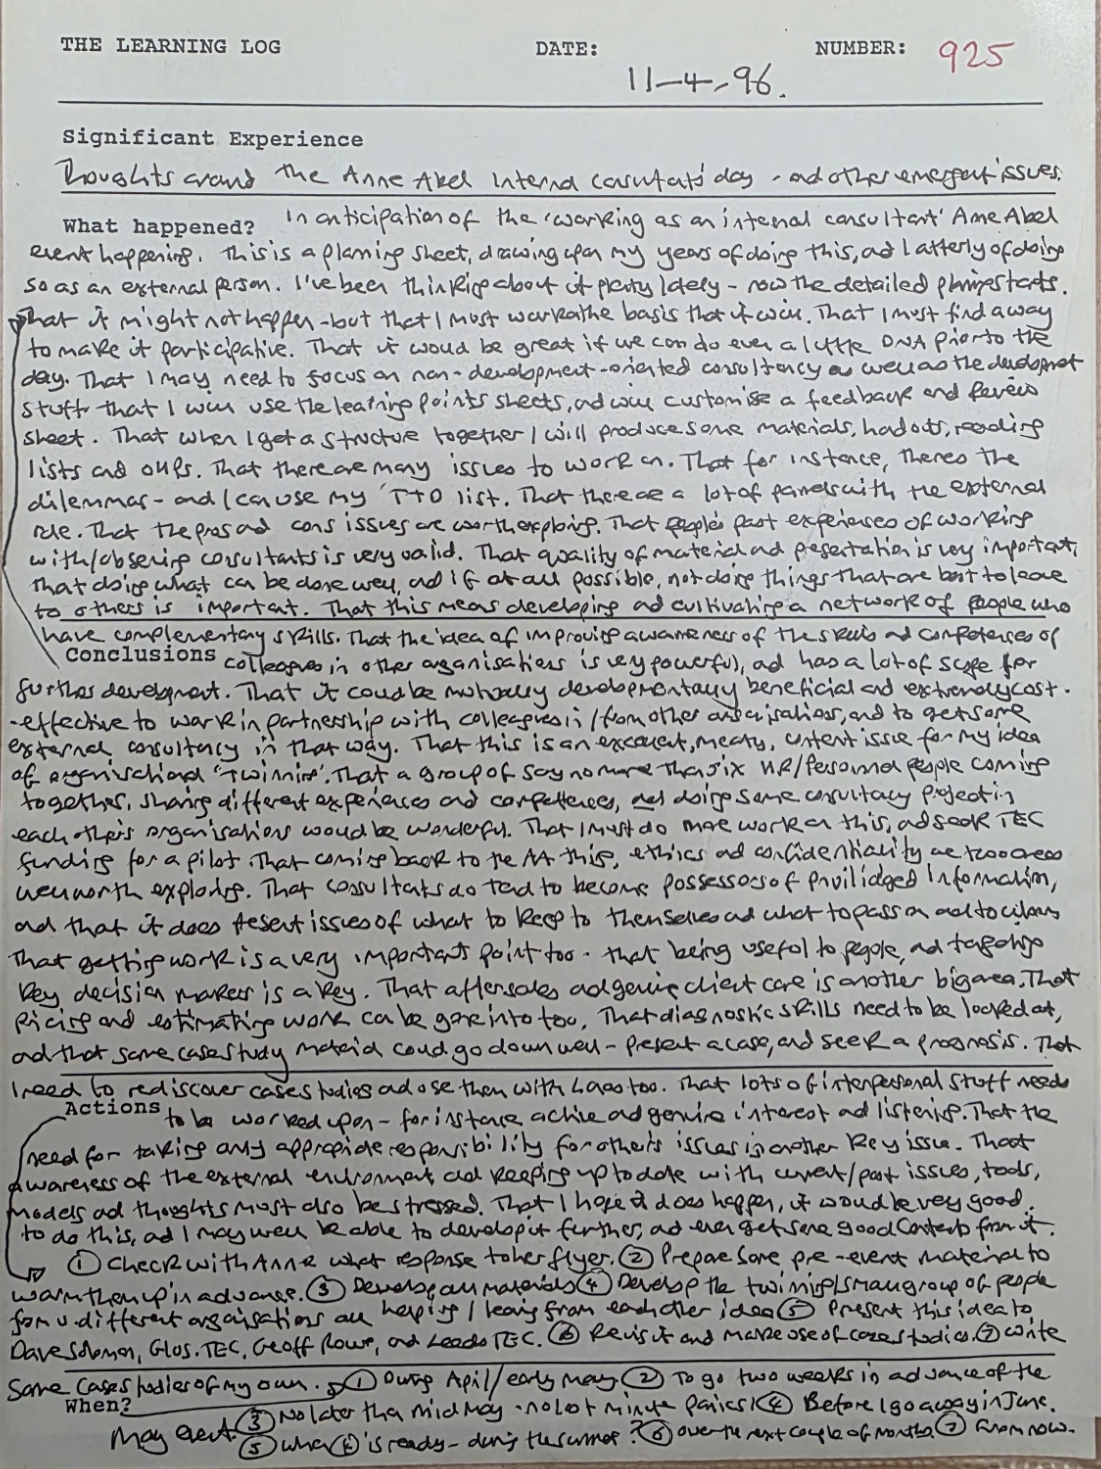 THE LEARNING LOG DATE: NUMBER: 925
11-4-96.
Significant Experience
Thoughts around the Anne Abel Internal Consultants' day - and other emergent issues.
What happened? In anticipation of the 'working as an internal consultant' Anne Abel
event happening. This is a planning sheet, drawing upon my years of doing this, and latterly of doing
so as an external person. I've been thinking about it plenty lately - now the detailed planning starts.
That it might not happen - but that I must work on the basis that it will. That I must find a way
to make it participative. That it would be great if we can do even a little DNA prior to the
day. That I may need to focus on non-development-oriented consultancy as well as the development
stuff. That I will use the learning points sheets, and will customise a feedback and review
sheet. That when I get a structure together I will produce some materials, handouts, reading
lists and OHPs. That there are many issues to work on. That for instance, there's the
dilemmas - and I can use my TTO list. That there are a lot of parallels with the external
role. That the pros and cons issues are worth exploring. That people's past experiences of working
with/observing consultants is very valid. That quality of material and presentation is very important,
That doing what can be done well, and if at all possible, not doing things that are best to leave
to others is important. That this means developing and cultivating a network of people who
have complementary skills. That the idea of improving awareness of the skills and competences of
Conclusions colleagues in other organisations is very powerful, and has a lot of scope for
further development. That it could be mutually developmentally beneficial and extremely cost-
-effective to work in partnership with colleagues in/from other organisations, and to get some
external consultancy in that way. That this is an excellent, meaty, content issue for my idea
of organisational 'Twinning'. That a group of say no more than six HR/Personnel people coming
together, sharing different experiences and competences, and doing some consultancy project in
each other's organisations would be wonderful. That I must do more work on this, and seek TEC
funding for a pilot. That coming back to the AA thing, ethics and confidentiality are two areas
well worth exploring. That consultants do tend to become possessors of privilidged information,
and that it does present issues of what to keep to themselves and what to pass on and to whom
That getting work is a very important point too. That being useful to people, and targeting
key decision makers is a key. That aftersales and genuine client care is another big area. That
pricing and estimating work can be gone into too. That diagnostic skills need to be looked at,
and that some case study material could go down well - present a case, and seek a prognosis. That
I need to rediscover case studies and use them with too. That lots of interpersonal stuff needs
Actions to be worked upon - for instance active and genuine interest and listening. That the
need for taking any appropriate responsibility for other's issues is another key issue. That
awareness of the external environment and keeping up to date with current/past issues, tools,
models and thoughts must also be stressed. That I hope it does happen, it would be very good
to do this, and I may well be able to develop it further, and even get some good contacts from it.
① Check with Anne what response to her flyer. ② Prepare some pre-event material to
warm them up in advance. ③ Develop all materials ④ Develop the twinning/small group of people
from different organisations all helping/learning from each other idea ⑤ Present this idea to
Dave Solomon, Glos. TEC, Geoff Rowe, and Leeds TEC. ⑥ Revisit and make use of case studies. ⑦ Write
some case studies of my own. ① During April/early May ② To go two weeks in advance of the
When?
May event ③ No later than mid May - no last minute panics! ④ Before I go away in June.
⑤ when ④ is ready - during the summer? ⑥ over the next couple of months. ⑦ From now.